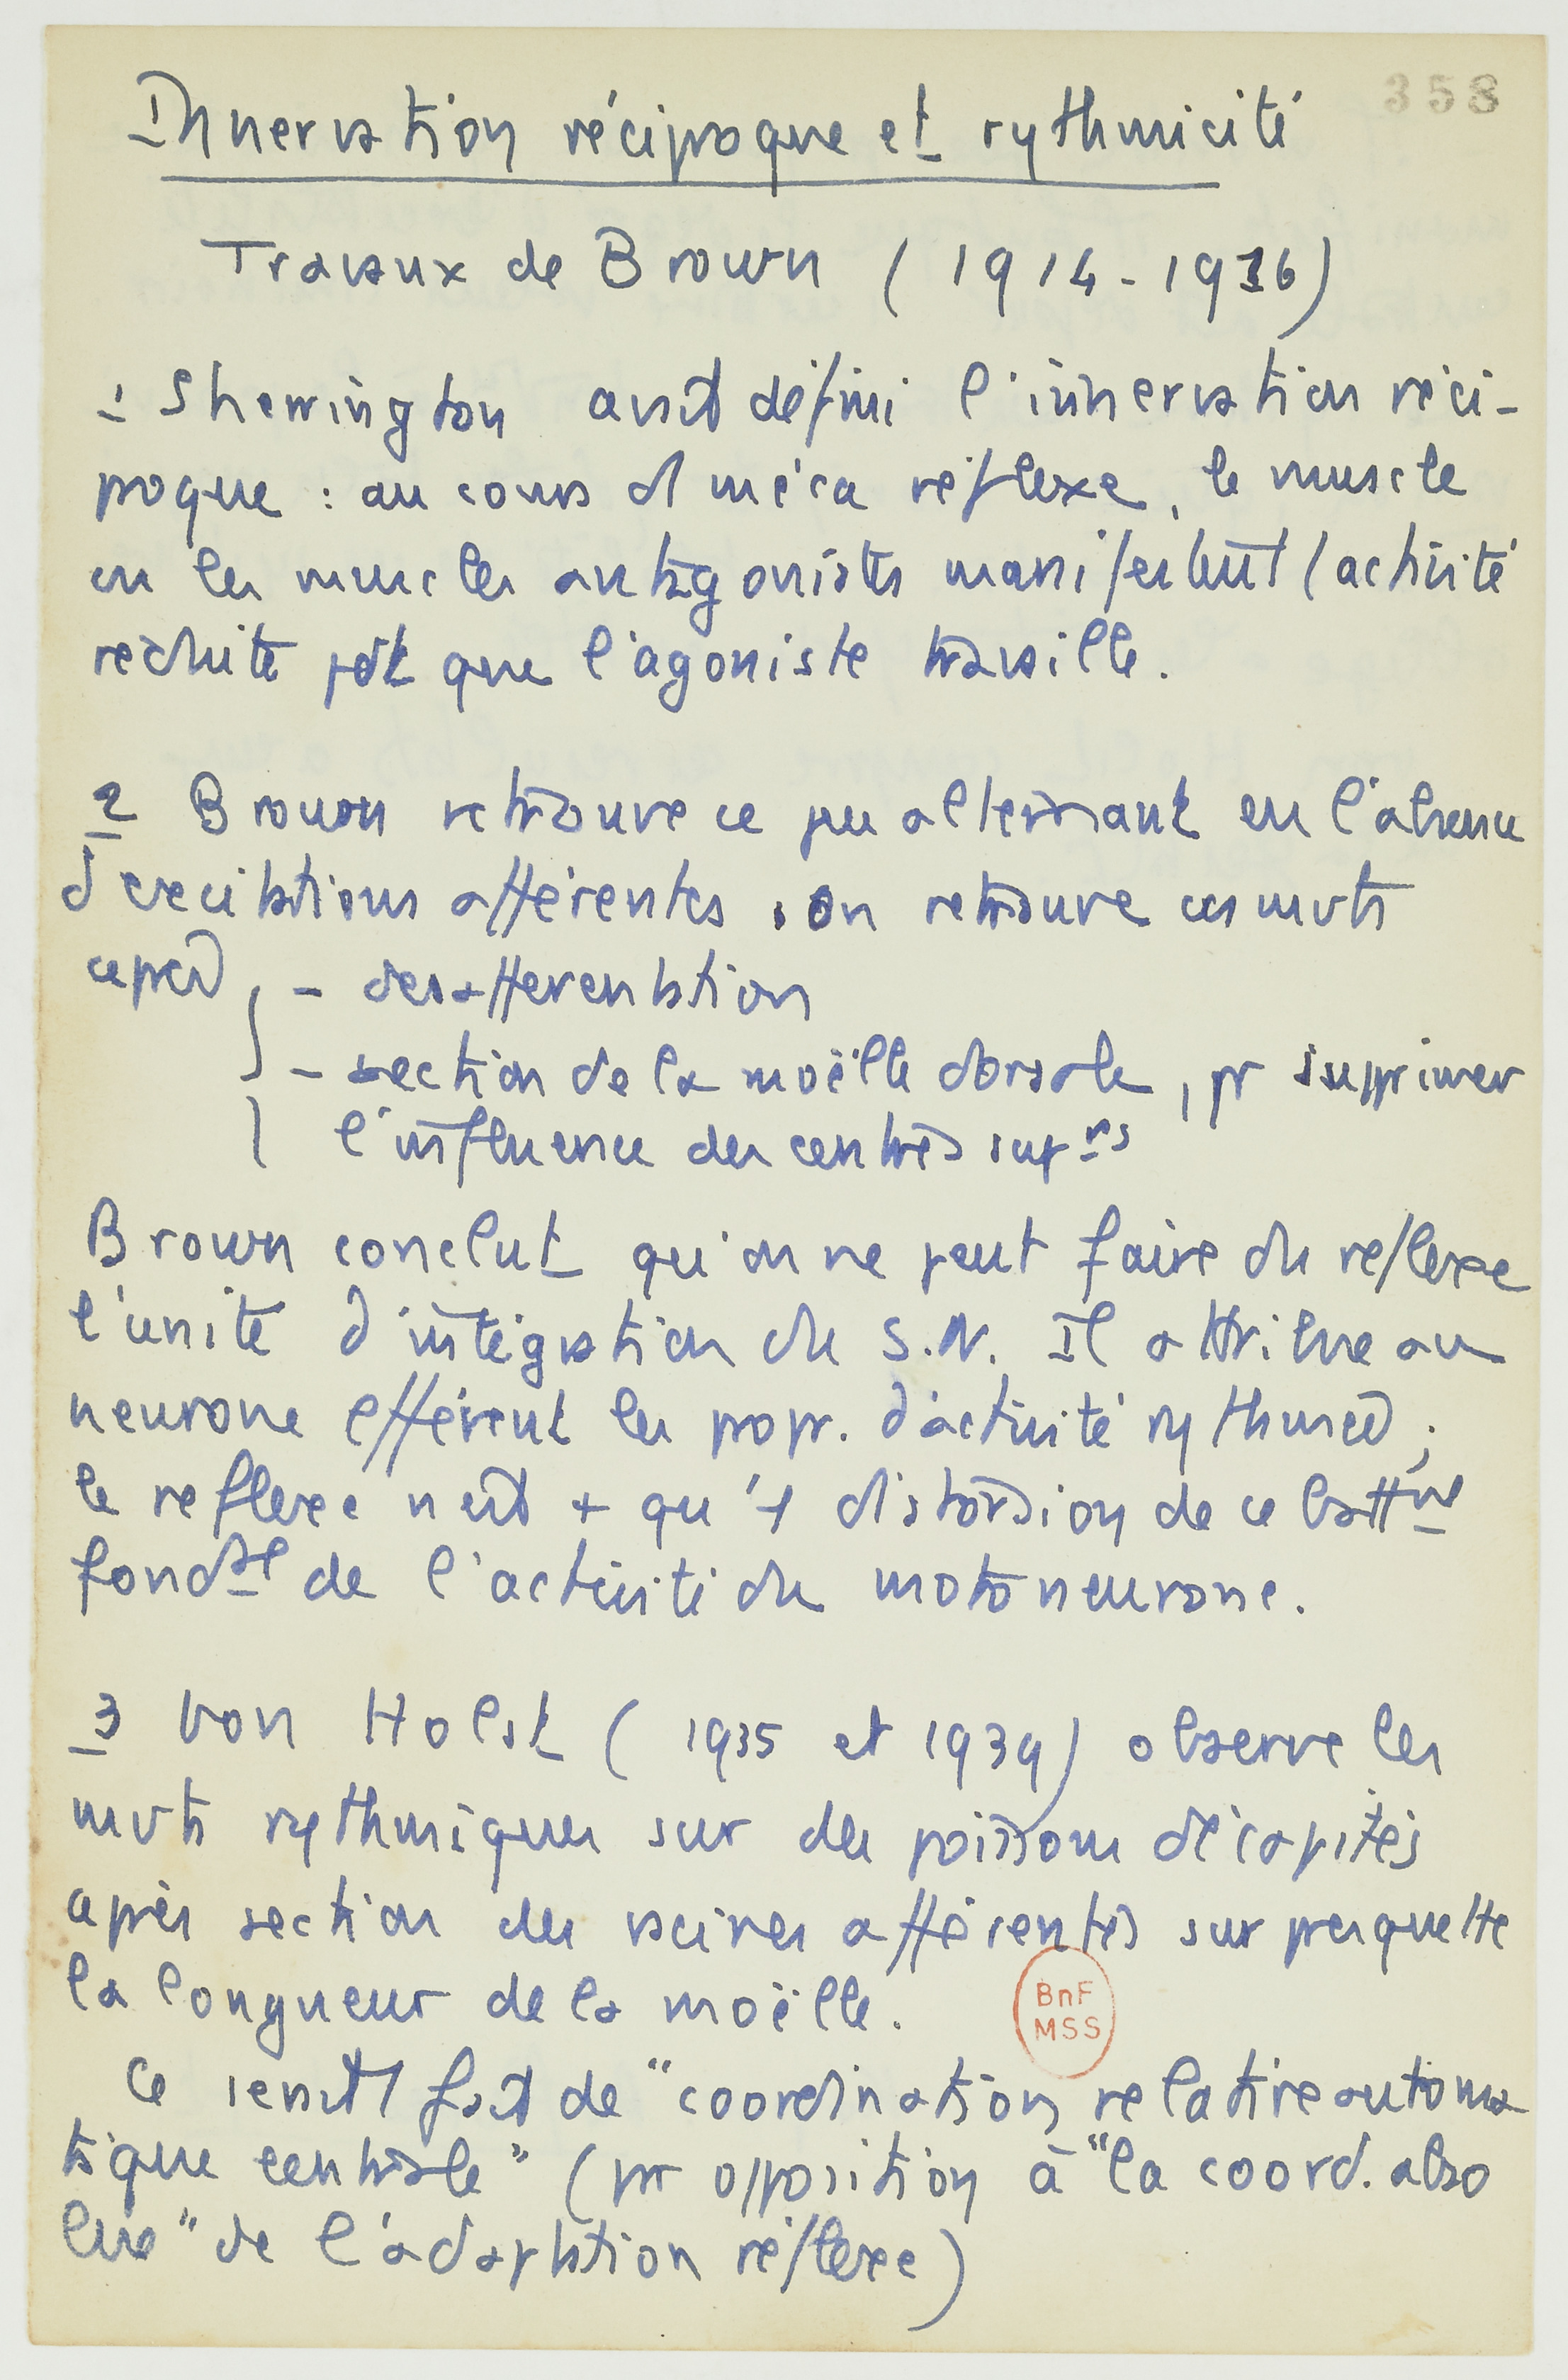 358
Innervation réciproque et rythmicité
Travaux de Brown (1914-1916)
1 Sherrington avait défini l'innervation réci-
proque : au cours d'1 méca réflexe, le muscle
ou les muscles antagonistes manifestent 1 activité
réduite pdt que l'agoniste travaille.
2 Brown retrouve ce jeu alternant en l'absence
d'excitations afférentes. on retrouve ces mvts
après - desafferentation
- section de la moëlle dorsale, pr supprimer
l'influence des centres suprs
Brown conclut qu'on ne peut faire du reflexe
l'unité d'intégration du S.N. Il attribue au
neurone efférent les propr. d'activité rythmée ;
le reflexe n'est + qu'1 distorsion de ce
fondal de l'activité du motoneurone.
3 Von Holst (1935 et 1939) observe les
mvts rythmiques sur des poissons décapités
après section des racines afférentes sur presque tte
la longueur de la moëlle.
BnF
MSS
Ce fait de "coordination relative automa
tique centrale" (pr opposition à "la coord. abso
lue" de l'adaptation réflexe)